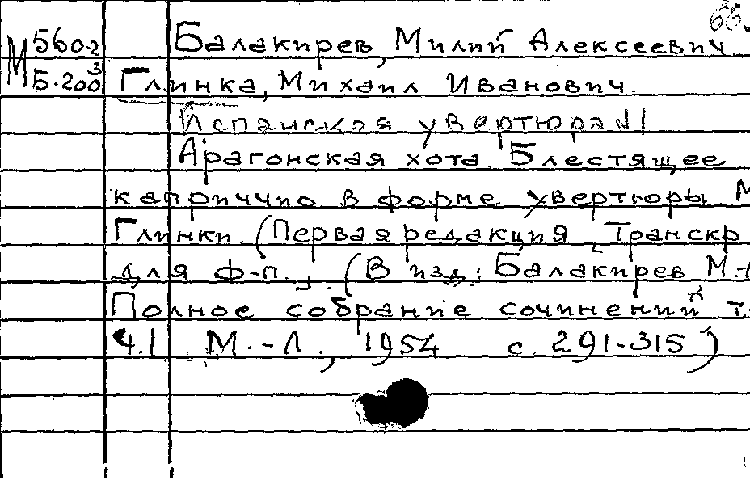 65.
М 5602 Балакирев, Милий Алексеевич
Б-200³ Глинка, Михаил Иванович
Испанская увертюра №1
Арагонская хота. Блестящее
каприччио в форме увертюры М
Глинки (Первая редакция, Транскр
для ф-п., (В изд.: Балакирев М.
Полное собрание сочинений т.
ч.1 М.-Л., 1954 с. 291-315)